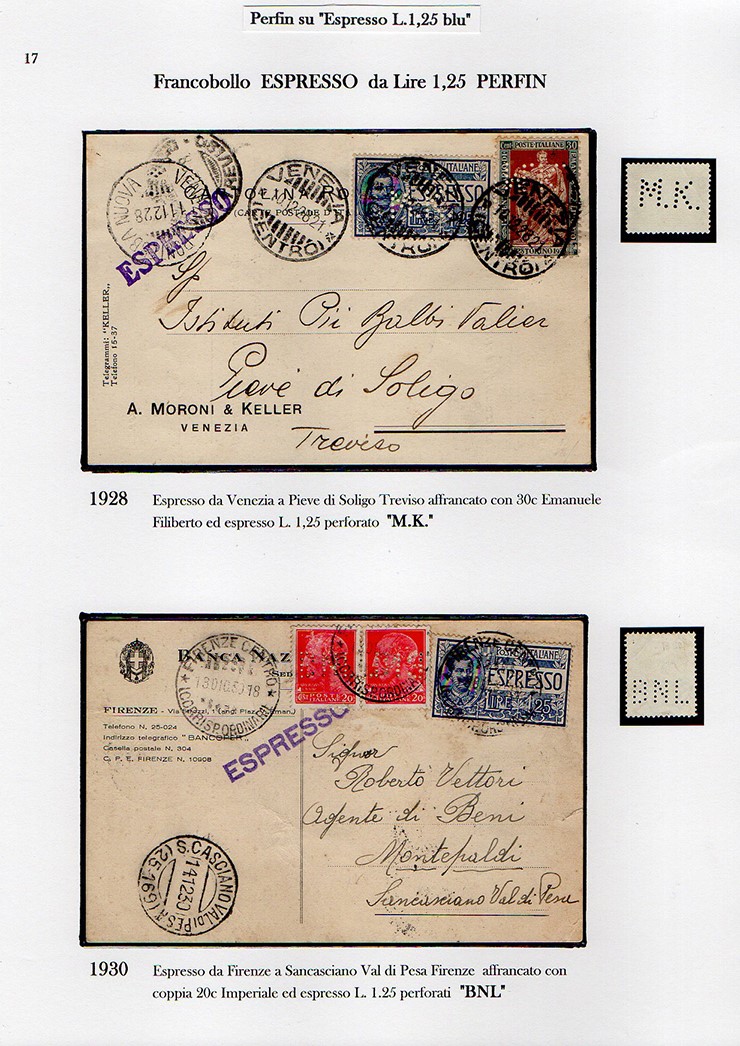 Perfin su "Espresso L.1,25 blu"
17
Francobollo ESPRESSO da Lire 1,25 PERFIN
VENEZIA
(CENTRO)
POSTE ITALIANE
ESPRESSO
LIRE 1,25
Cent 30
POSTE·ITALIANE
VENEZIA
(CENTRO)
M.K.
11 12 28
ESPRESSO
(CARTE POSTALE D'
Telegrammi: "KELLER"
Telefono 15-37
Istituti Pii Balbi Valier
Pieve di Soligo
Treviso
A. MORONI & KELLER
VENEZIA
1928 Espresso da Venezia a Pieve di Soligo Treviso affrancato con 30c Emanuele
Filiberto ed espresso L. 1,25 perforato "M.K."
FIRENZE CENTRO
(CORRISP. ORDINARIE)
13 DIC 30 18
BANCA NAZ
POSTE ITALIANE 20
POSTE ITALIANE 20
POSTE ITALIANE
ESPRESSO
LIRE 1,25
BNL
FIRENZE - Via
Telefono N. 25-024
Indirizzo telegrafico "BANCOPER"
Casella postale N. 304
C. P. E. FIRENZE N. 10908
ESPRESSO
Signor
Roberto Vettori
Agente di Beni
Montepaldi
Sancasciano Val di Pesa
S. CASCIANO VAL DI PESA (25-16)
14 12 30
1930 Espresso da Firenze a Sancasciano Val di Pesa Firenze affrancato con
coppia 20c Imperiale ed espresso L. 1.25 perforati "BNL"